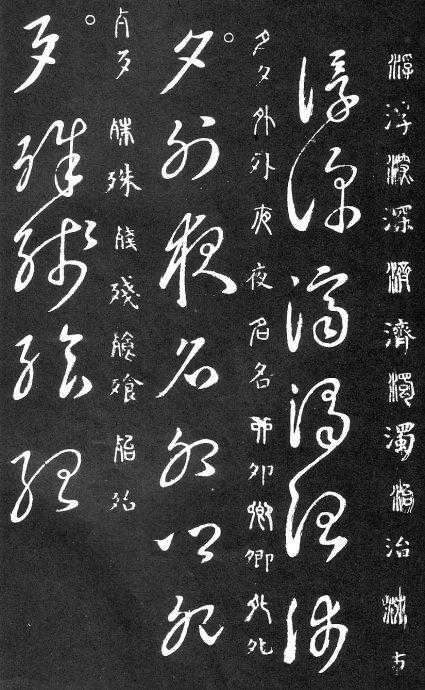 浮浮深深濟濟濁濁治治
浮深濟濁治
夕夕外外夜夜名名卯卯卿卿
夕外夜名卯卿
歹歹殊殊殘殘殆殆
歹殊殘殆